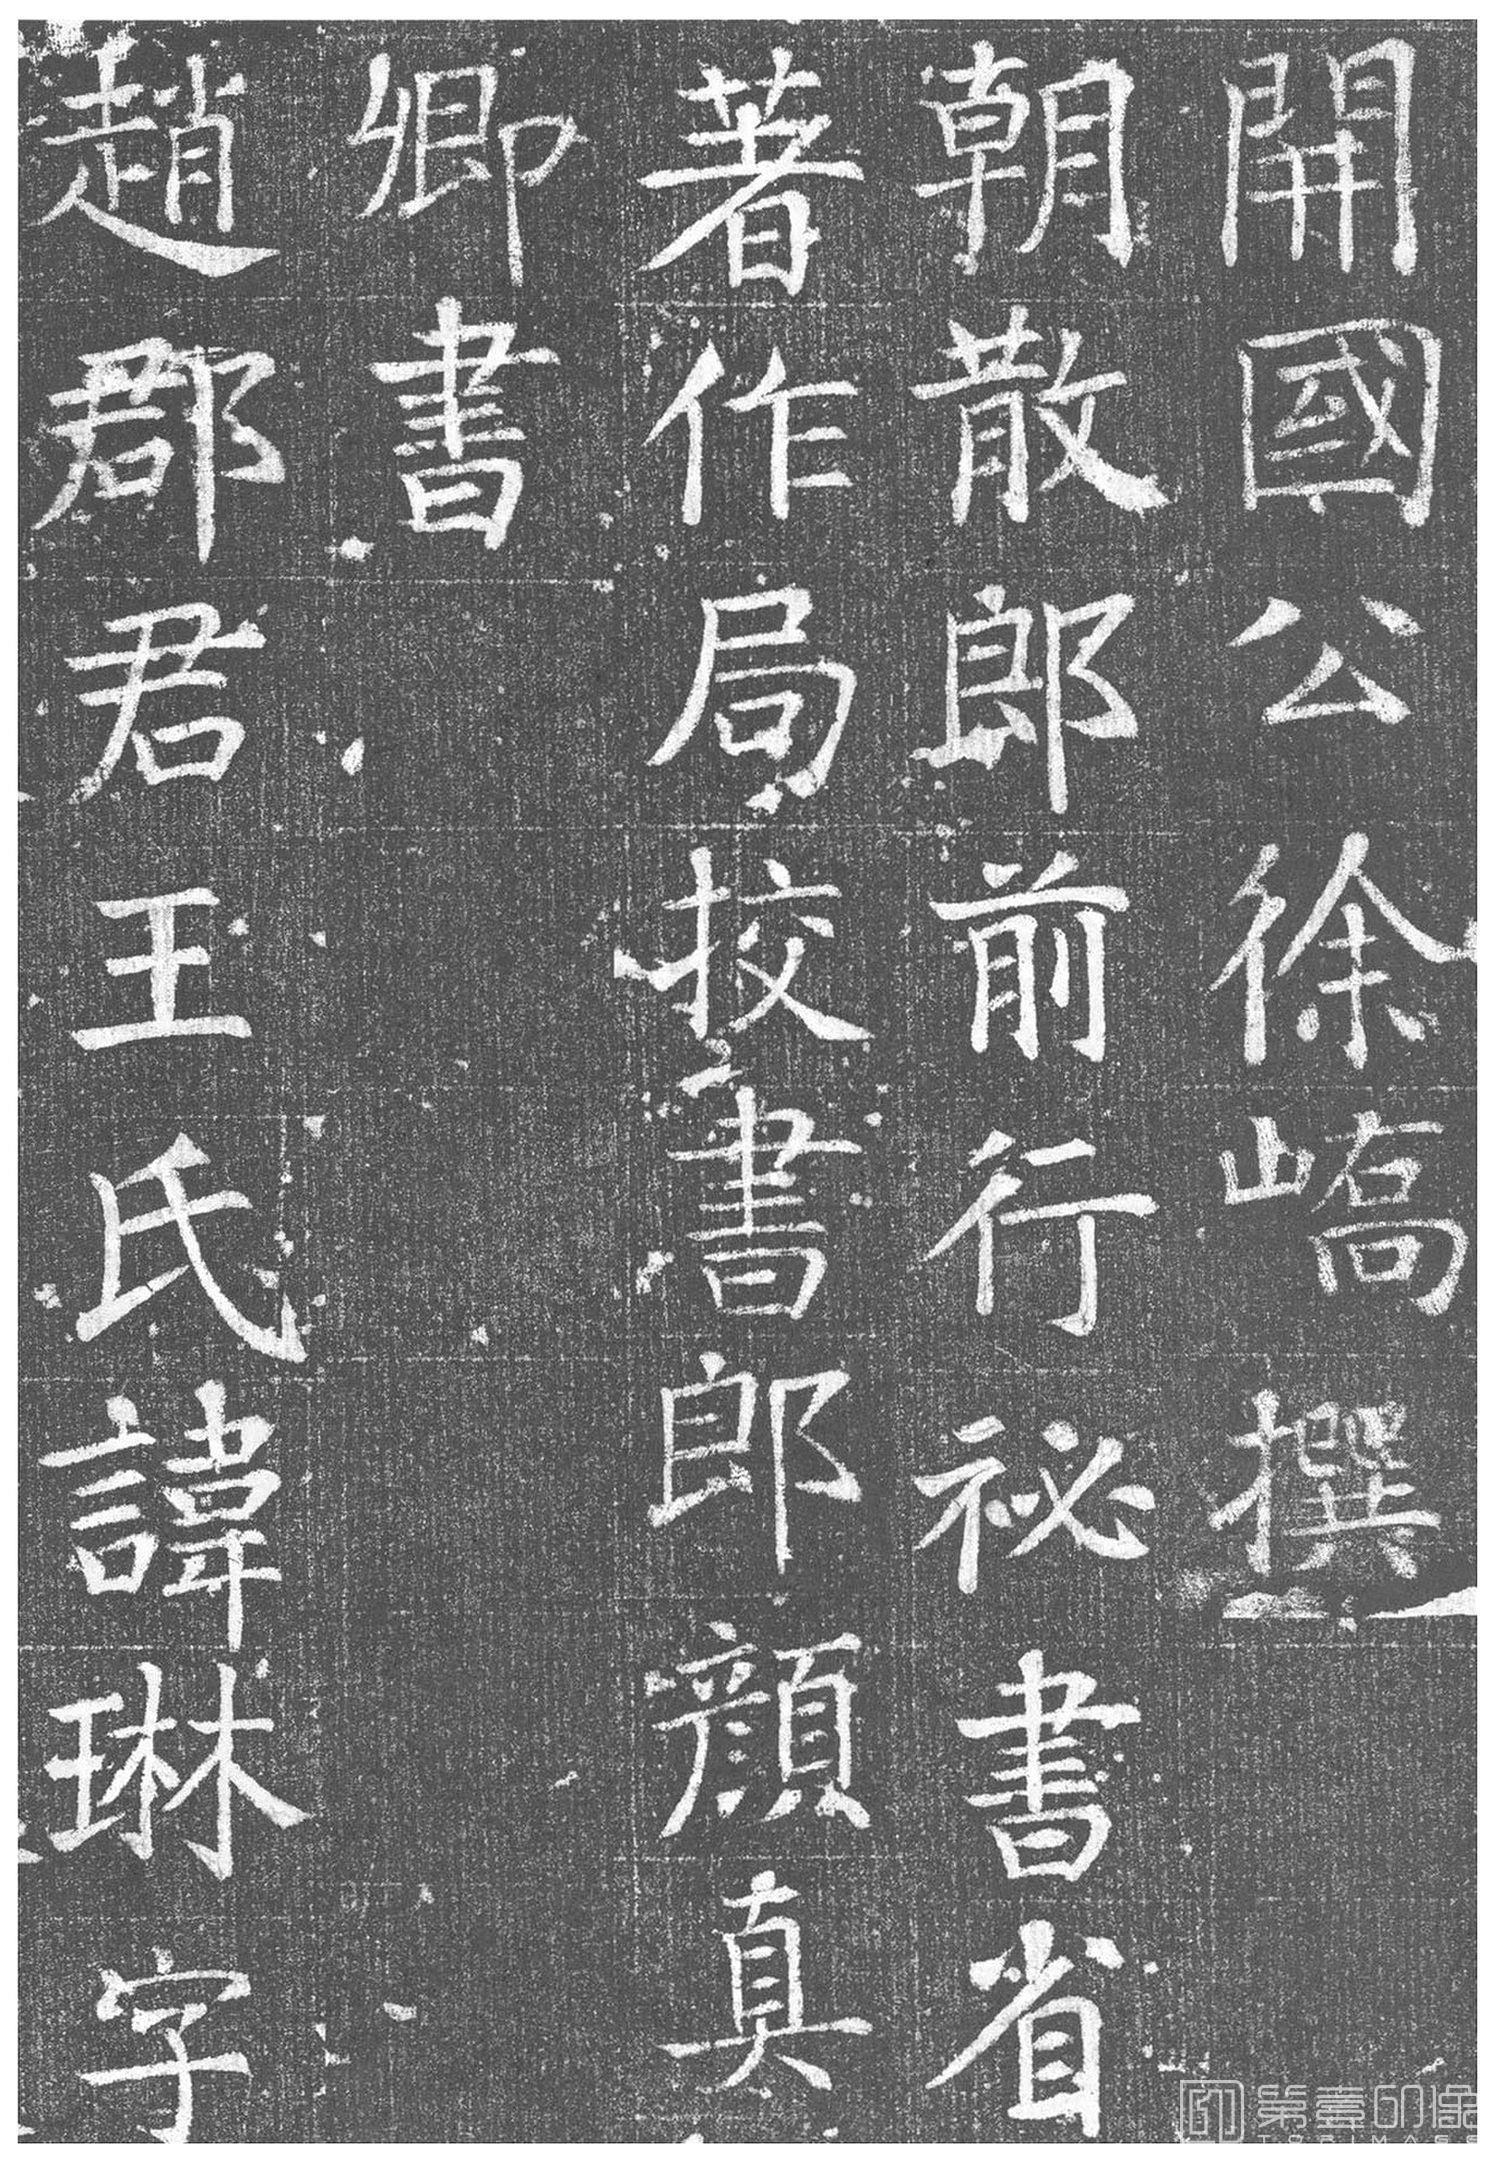 開國公徐嶠撰
朝散郎前行祕書省
著作局挍書郎顏真
卿書
趙郡君王氏諱琳字
第壹印像
TOPIMAGE